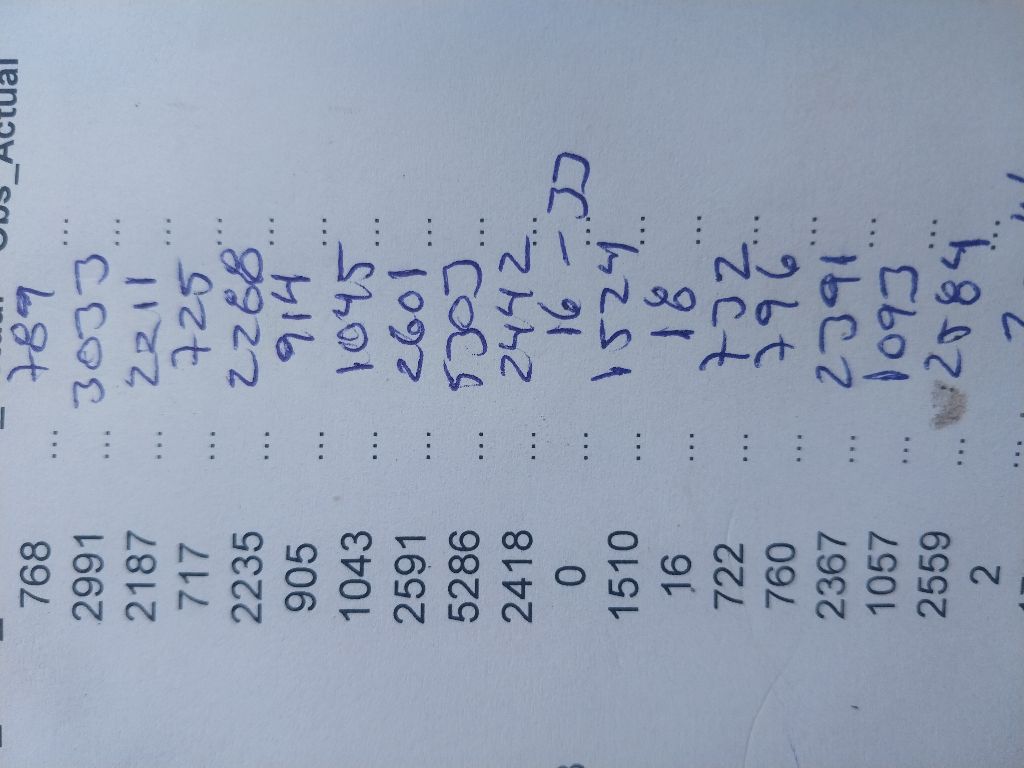 Obs_Actual
768 ... 789 ...
2991 ... 3033 ...
2187 ... 2211 ...
717 ... 725 ...
2235 ... 2268 ...
905 ... 914 ...
1043 ... 1045 ...
2591 ... 2601 ...
5286 ... 5303 ...
2418 ... 2442 ...
0 ... 16 - 33 ...
1510 ... 1524 ...
16 ... 18 ...
722 ... 732 ...
760 ... 796 ...
2367 ... 2391 ...
1057 ... 1093 ...
2559 ... 2584 ...
2 ...